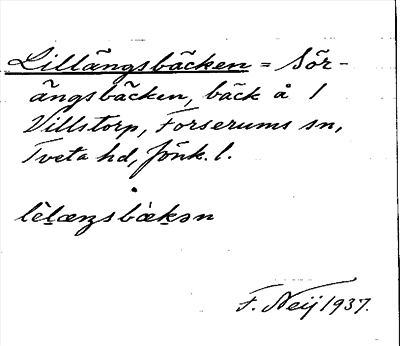 Lillängsbäcken = Sör-
ängsbäcken, bäck å 1
Villstorp, Forserums sn,
Tveta hd, Jönk. l.
lèlæŋsbæ̀kən
F. Neij 1937.